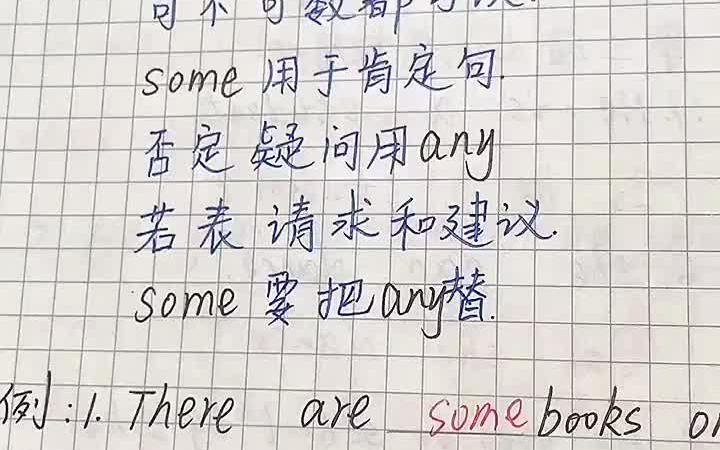 可不可数都可以.
some 用于肯定句.
否定疑问用any
若表请求和建议.
some 要把any替.
例:1. There are some books on